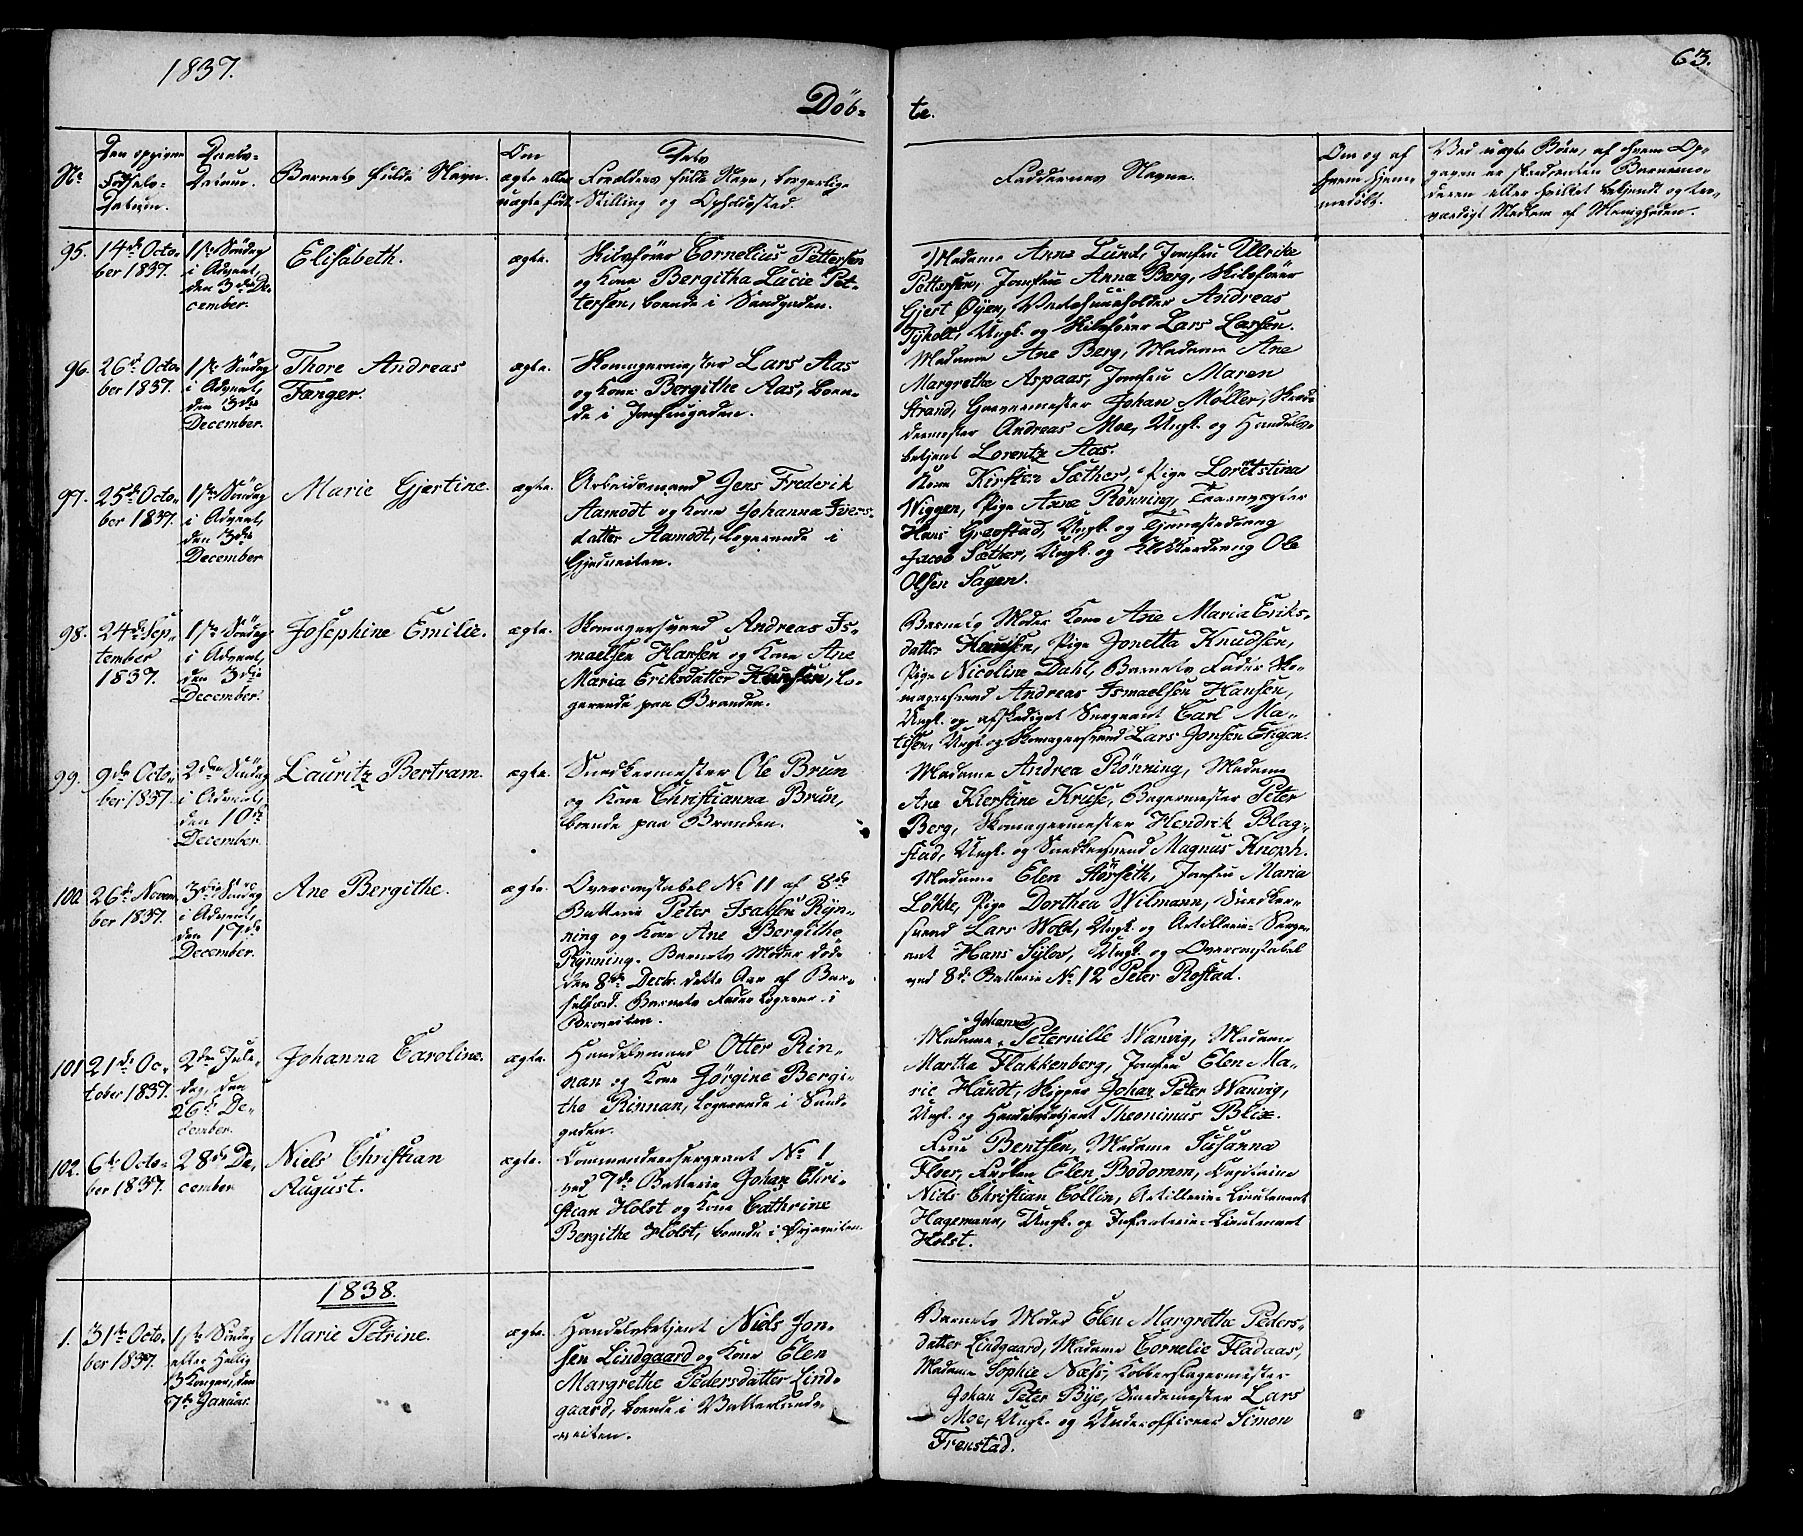 1837.
63.
Döb-
te.
No
Den opgivne
Fødsels-
Datum.
Daabs-
Datum.
Barnets fulde Navn.
Om
ægte eller
uægte født
Dets
Forældres fulde Navn, borgerlige
Stilling og Opholdssted.
Faddernes Navne.
Om og af
hvem hjemme-
døbt.
Ved uægte Børn, af hvem Op-
95.
14de Octo-
ber 1837.
1ste Søndag
i Advent,
den 3die De-
cember.
Elisabeth.
ægte.
Skibsfører Cornelius Pettersen
og Kone Bergitha Lucie Pet-
tersen, boende i Sandgaden.
Madame Anne Lund, Jomfru Ullrike
Pettersen, Jomfru Anna Berg, Skibsfører
Gjert Øyen, Vertshuusholder Andreas
Tyholt, Ungk. og Skibsfører Lars Larssen.
96.
26de Octo-
ber 1837.
1ste Søndag
i Advent,
den 3die
December.
Thore Andreas
Fænger.
ægte.
Skomagermester Lars Aas
og Kone Bergithe Aas, boen-
de i Jomfrugaden.
Madame Ane Berg, Madame Ane
Margrethe Aspaas, Jomfru Maren
Strand, Garvermester Johan Möller, Skræd-
dermester Andreas Moe, Ungk. og Handels-
betjent Lorentz Aas.
97.
25de Octo-
ber 1837.
1ste Søndag
i Advent,
den 3die
December
Marie Gjertine.
ægte.
Arbeidsmand Jens Frederik
Aamodt og Kone Johanna Ivers-
datter Aamodt, logerende i
Gjedveiten.
Kone Kirsten Sæther, Pige Loretstina
Wiggen, Pige Ane Rönning,
Hans Grøfstad, Ungk. og Tjenestedreng
Jacob Sæther, Ungk. og Klokkerdreng Ole
Olsen Sagen.
98.
24de Sep-
tember
1837.
1ste Søndag
i Advent,
den 3die
December.
Josephine Emilie.
ægte.
Skomagersvend Andreas Is-
maelsen Hansen og Kone Ane
Maria Eriksdatter Hansen, lo-
gerende paa Branden.
Barnets Moder Kone Ane Maria Eriks-
datter Hansen, Pige Jonetta Knudsen,
Pige Nicoline Dahl, Barnets Fader Sko-
magersvend Andreas Ismaelsen Hansen,
Ungk. og afskediget Sergeant Carl Ma-
tisen, Ungk. og Skomagersvend Lars Jonsen Engen.
99.
9de Octo-
ber 1837.
2den Søndag
i Advent,
den 10de
December.
Lauritz Bertram.
ægte.
Snedkermester Ole Brun
og Kone Christianna Brun,
boende paa Branden.
Madame Andrea Rönning, Madame
Ane Kierstine Kruse, Bagermester Peter
Berg, Skomagermester Hendrik Blag-
stad, Ungk. og Snedkersvend Magnus Knoph.
100.
26de Novem-
ber 1837.
3die Søndag
i Advent,
den 17de
December.
Ane Bergithe.
ægte.
Overconstabel No 11 af 8de
Batterie Peter Isaksen Ryn-
ning og Kone Ane Bergithe
Rynning. Barnets Moder døde
den 8de Decbr. dette Aar af Bar-
selfærd. Barnets Fader logerer i
Madame Elen Hørseth, Jomfru Maria
Løkke, Pige Dorthea Wilmann, Snedker-
svend Lars Wold, Ungk. og Artillerie-Serge-
ant Hans Sylow, Ungk. og Overconstabel
ved 8de Batterie No 12 Peter Rostad.
101.
21de Oc-
tober 1837.
2den Jule-
dag, den
26de De-
cember.
Johanna Caroline.
ægte.
Handelsmand Otter Rin-
nan og Kone Jörgine Bergi-
the Rinnan, logerende i Sand-
gaden.
Johanna
Madame Peternille Wanvig, Madame
Martha Flakkenberg, Jomfru Elen Ma-
rie Haudt, Skipper Johan Peter Wanvig,
Ungk. og Handelsbetjent Theonimus Blix.
102.
6te Octo-
ber 1837.
28de De-
cember
Niels Christian
August.
ægte.
Commandeersergeant No 1
ved 7de Batterie Johan Chri-
stian Holst og Kone Cathrine
Bergithe Holst, boende i Prinsveiten.
Frue Bentsen, Madame Susanna
Floer, Frøken Elen Bodomon, Capitaine
Niels Christian Collin, Artillerie-Lieutenant
Hagemann, Ungk. og Infanterie-Lieutenant
Holst.
1838.
1.
31te Octo-
ber 1837.
1ste Søndag
efter Hellig
3 Konger, den
7de Januar.
Marie Petrine.
ægte.
Handelsbetjent Niels Jon-
sen Lindgaard og Kone Elen
Margrethe Pedersdatter Lind-
gaard, boende i Vatterlands-
veiten.
Barnets Moder Elen Margrethe Peders-
datter Lindgaard, Madame Cornelie Fladaas,
Madame Sophie Næss, Kobberslagermester
Johan Peter Bye, Smedemester Lars
Moe, Ungk. og Underofficeer Simon
Frenstad.